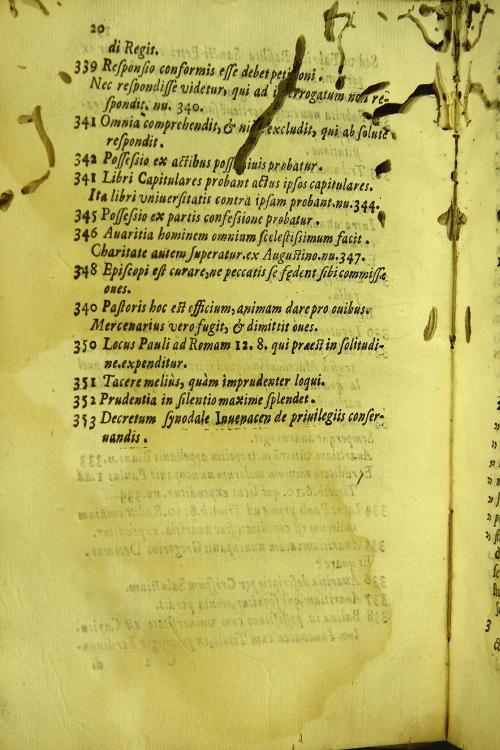 20
di Regis.
339 Responsio conformis esse debet petitioni.
Nec respondisse videtur, qui ad interrogatum non re-
spondit. nu. 340.
341 Omnia comprehendit, & nihil excludit, qui absolutè
respondit.
342 Possessio ex actibus possessiuis probatur.
341 Libri Capitulares probant actus ipsos capitulares.
Ita libri vniuersitatis contra ipsam probant. nu. 344.
345 Possessio ex partis confessione probatur.
346 Auaritia hominem omnium scelestissimum facit.
Charitate autem superatur. ex Augustino. nu. 347.
348 Episcopi est curare, ne peccatis se fędent sibi commissæ
oues.
340 Pastoris hoc est officium, animam dare pro ouibus.
Mercenarius vero fugit, & dimittit oues.
350 Locus Pauli ad Romam 12. 8. qui præest in solitudi-
ne. expenditur.
351 Tacere meliùs, quàm imprudenter loqui.
352 Prudentia in silentio maxime splendet.
353 Decretum synodale Inuenacen de priuilegiis conser-
uandis.